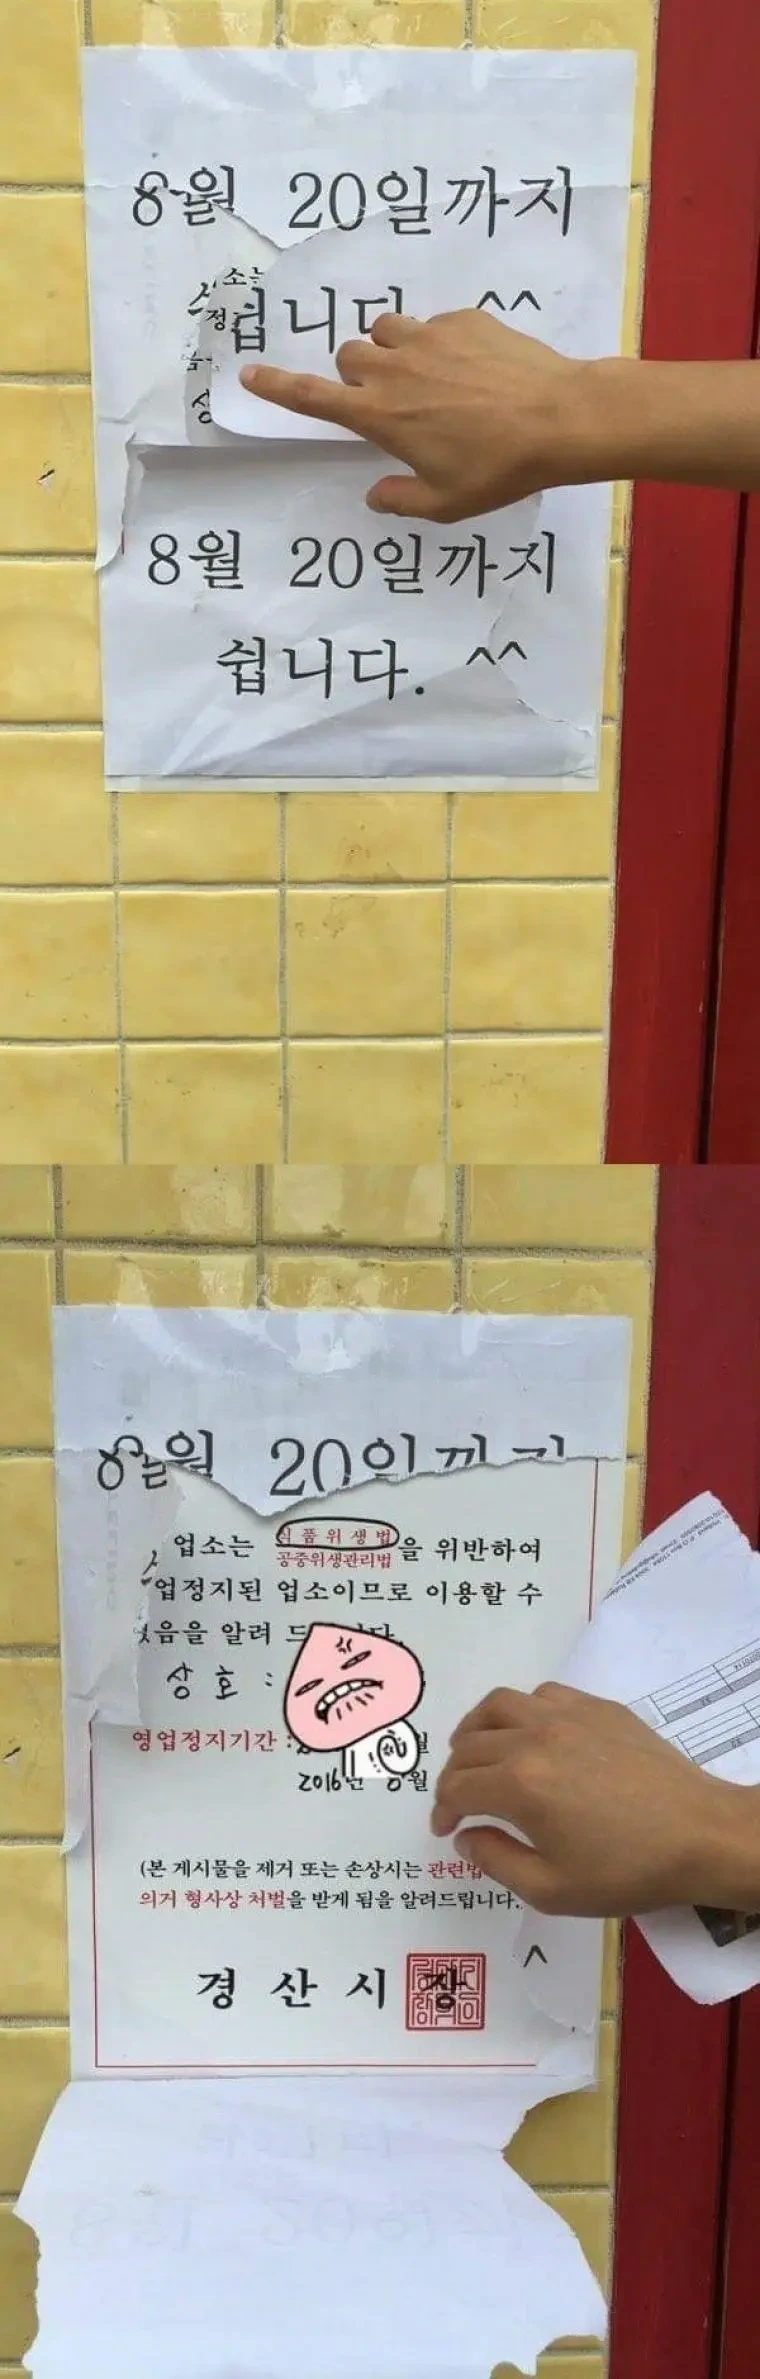 8월 20일까지
소는
쉽니다. ^^
정
상
8월 20일까지
쉽니다. ^^
8월 20일까지
업소는 식품위생법 을 위반하여
공중위생관리법
업정지된 업소이므로 이용할 수
음을 알려 드 다.
상 호 :
영업정지기간 : 월
2016년 8월
(본 게시물을 제거 또는 손상시는 관련법
의거 형사상 처벌을 받게 됨을 알려드립니다.
^
경 산 시 장